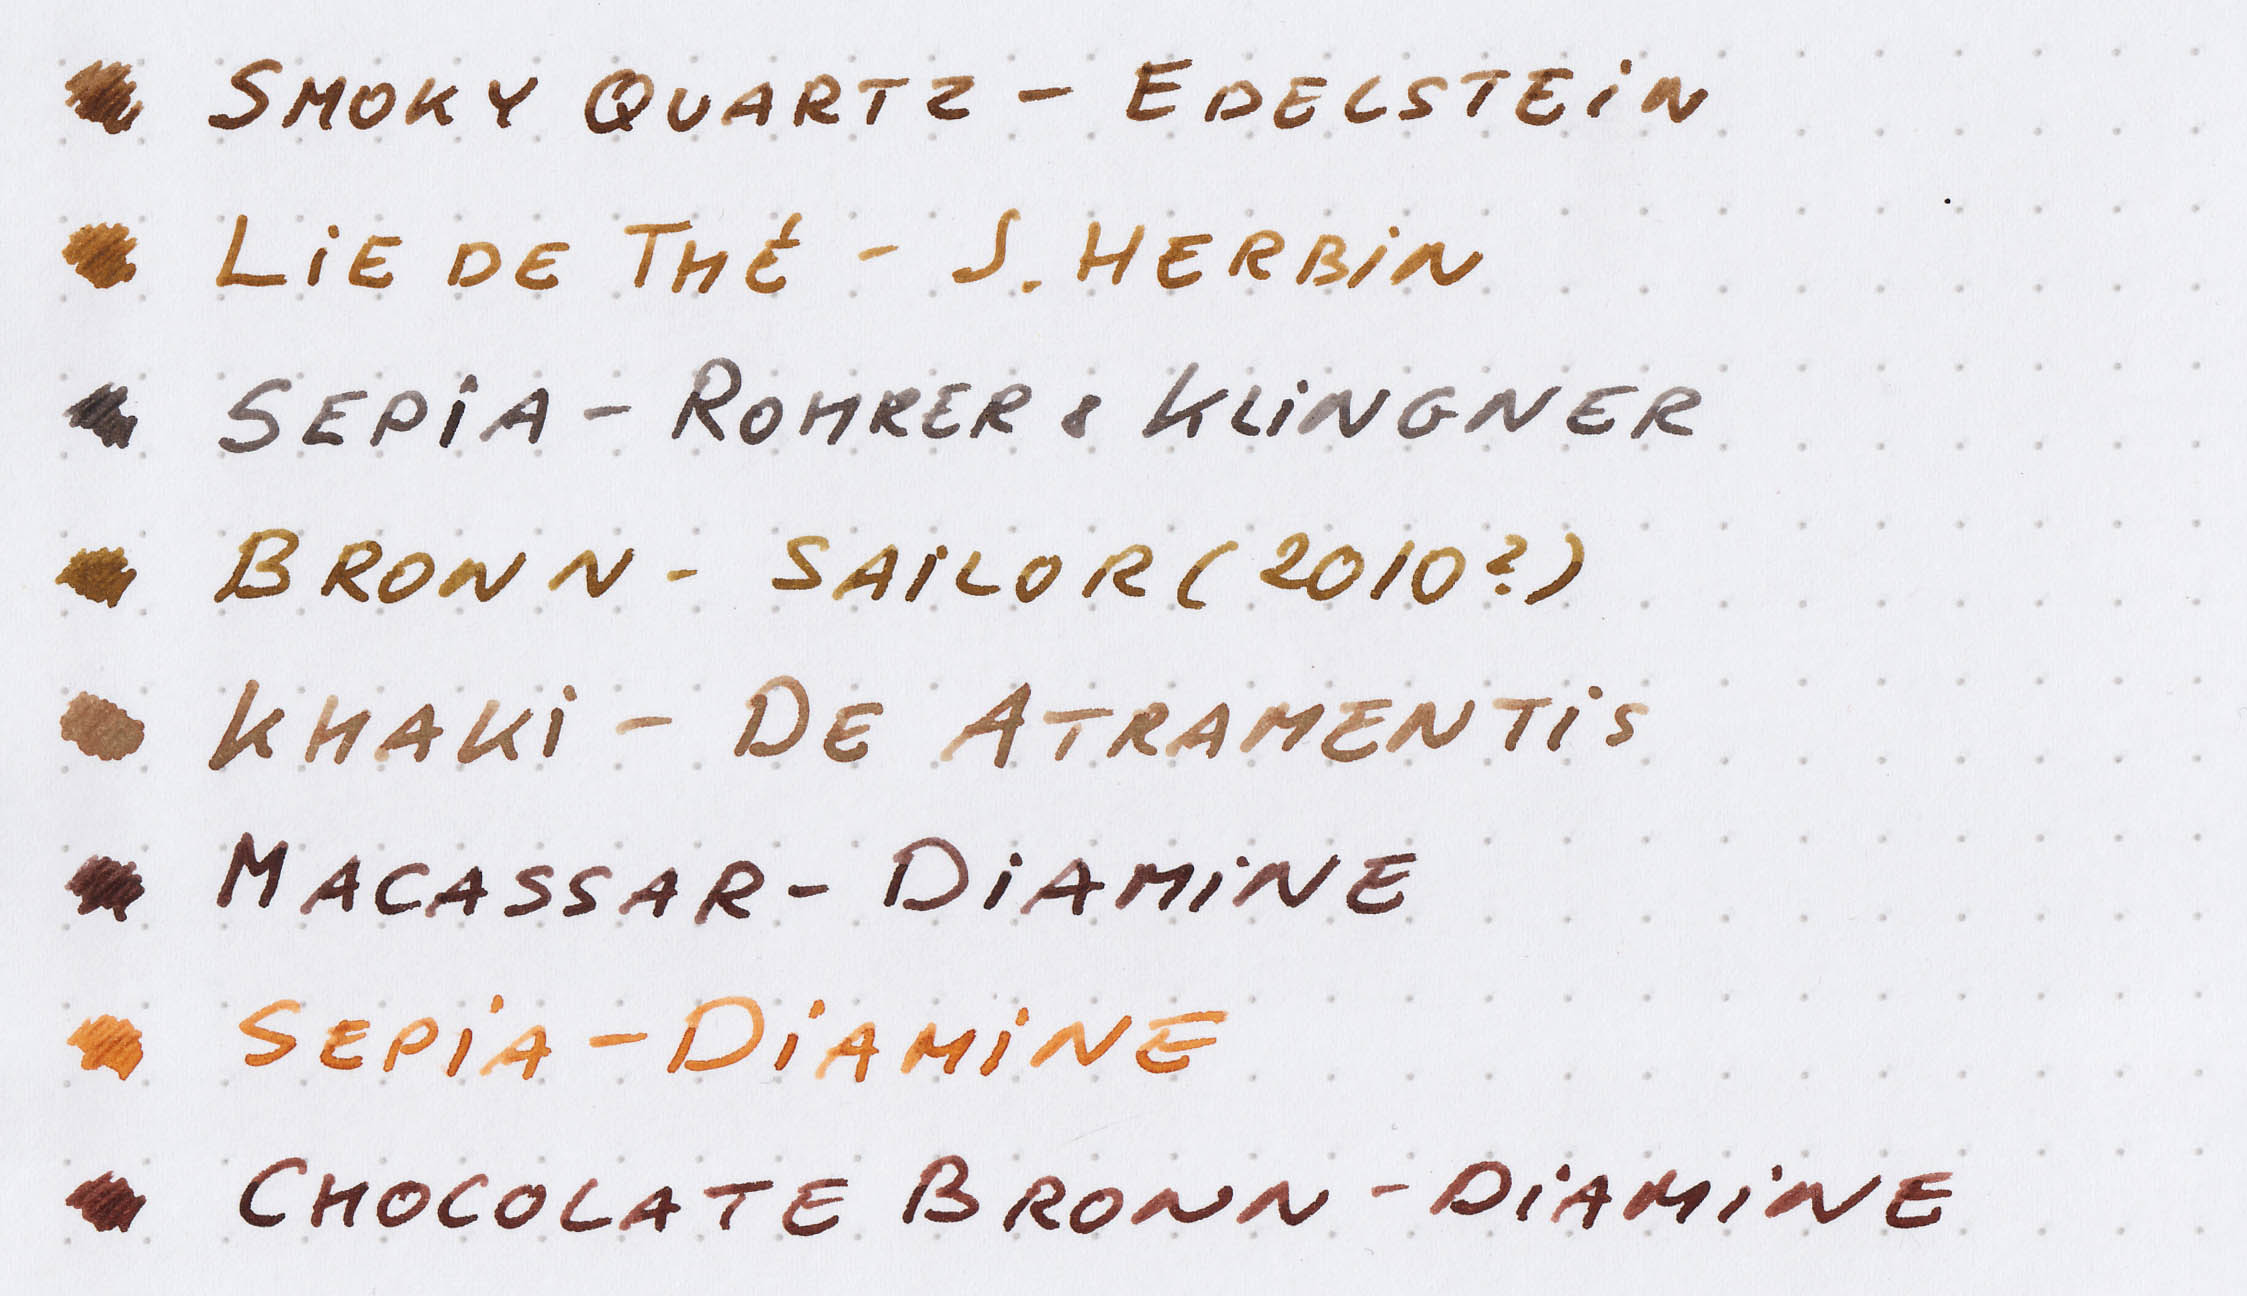 SMOKY QUARTZ - EDELSTEIN
LiE DE THÉ - J. HERBiN
SEPiA - ROHRER & KLiNGNER
BROWN - SAiLOR (2010?)
KHAKi - DE ATRAMENTiS
MACASSAR - DiAMiNE
SEPiA - DiAMiNE
CHOCOLATE BROWN - DiAMiNE